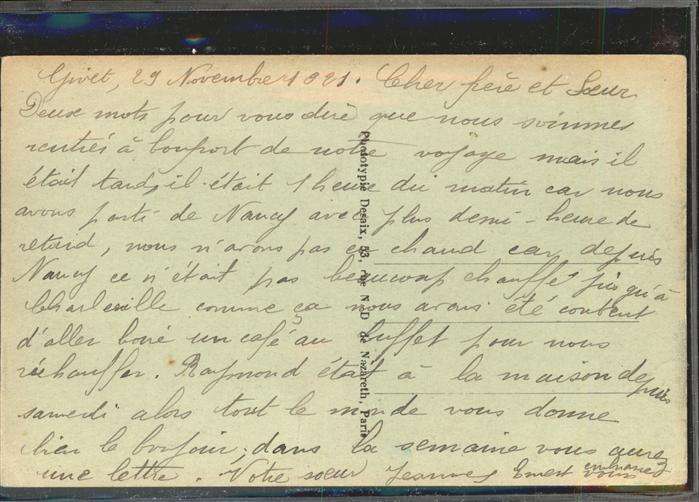 Givet, 29 Novembre 1921. Cher frère et Sœur
Deux mots pour vous dire que nous sommes
rentrés à bonport de notre voyage mais il
était tard, il était 1 heure du matin car nous
avons parti de Nancy avec plus demi-heure de
retard, nous n'avons pas eu chaud car depuis
Nancy ce n'était pas beaucoup chauffé jusqu'à
Charleville comme ça nous avons été content
d'aller boire un café au buffet pour nous
réchauffer. Raymond était à la maison depuis
samedi alors tout le monde vous donne
bien le bonjour; dans la semaine vous aurez
une lettre. Votre sœur Jeanne, Ernest vous embrassez
Phototypie Desaix, 53, rue N.-D. de Nazareth, Paris